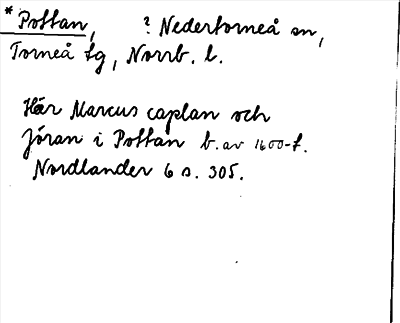 *Pottan, ? Nedertorneå sn,
Torneå tg, Norrb. l.
Här Marcus caplan och
Jöran i Pottan b. av 1600-t.
Nordlander 6 s. 305.